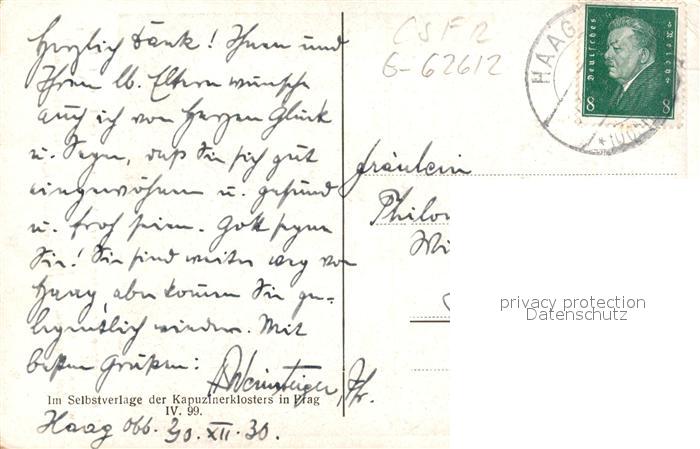 Herzlich Dank! Ihnen und
Ihren lb. Eltern wünsche
auch ich von Herzen Glück
u. Segen, daß Sie sich gut
eingewöhnen u. gesund
u. froh seien. Gott segne
Sie! Sie sind weiter weg von
Haag, aber kommen Sie ge-
legentlich wieder. Mit
besten Grüßen:
Weinsteiger, Pfr.
Im Selbstverlage der Kapuzinerklosters in Prag
IV. 99.
Haag Obb. 30. XII. 30.
CSFR
G-62612
HAAG
Deutsches Reich
8 8
Fräulein
Philo
Wi
privacy protection
Datenschutz